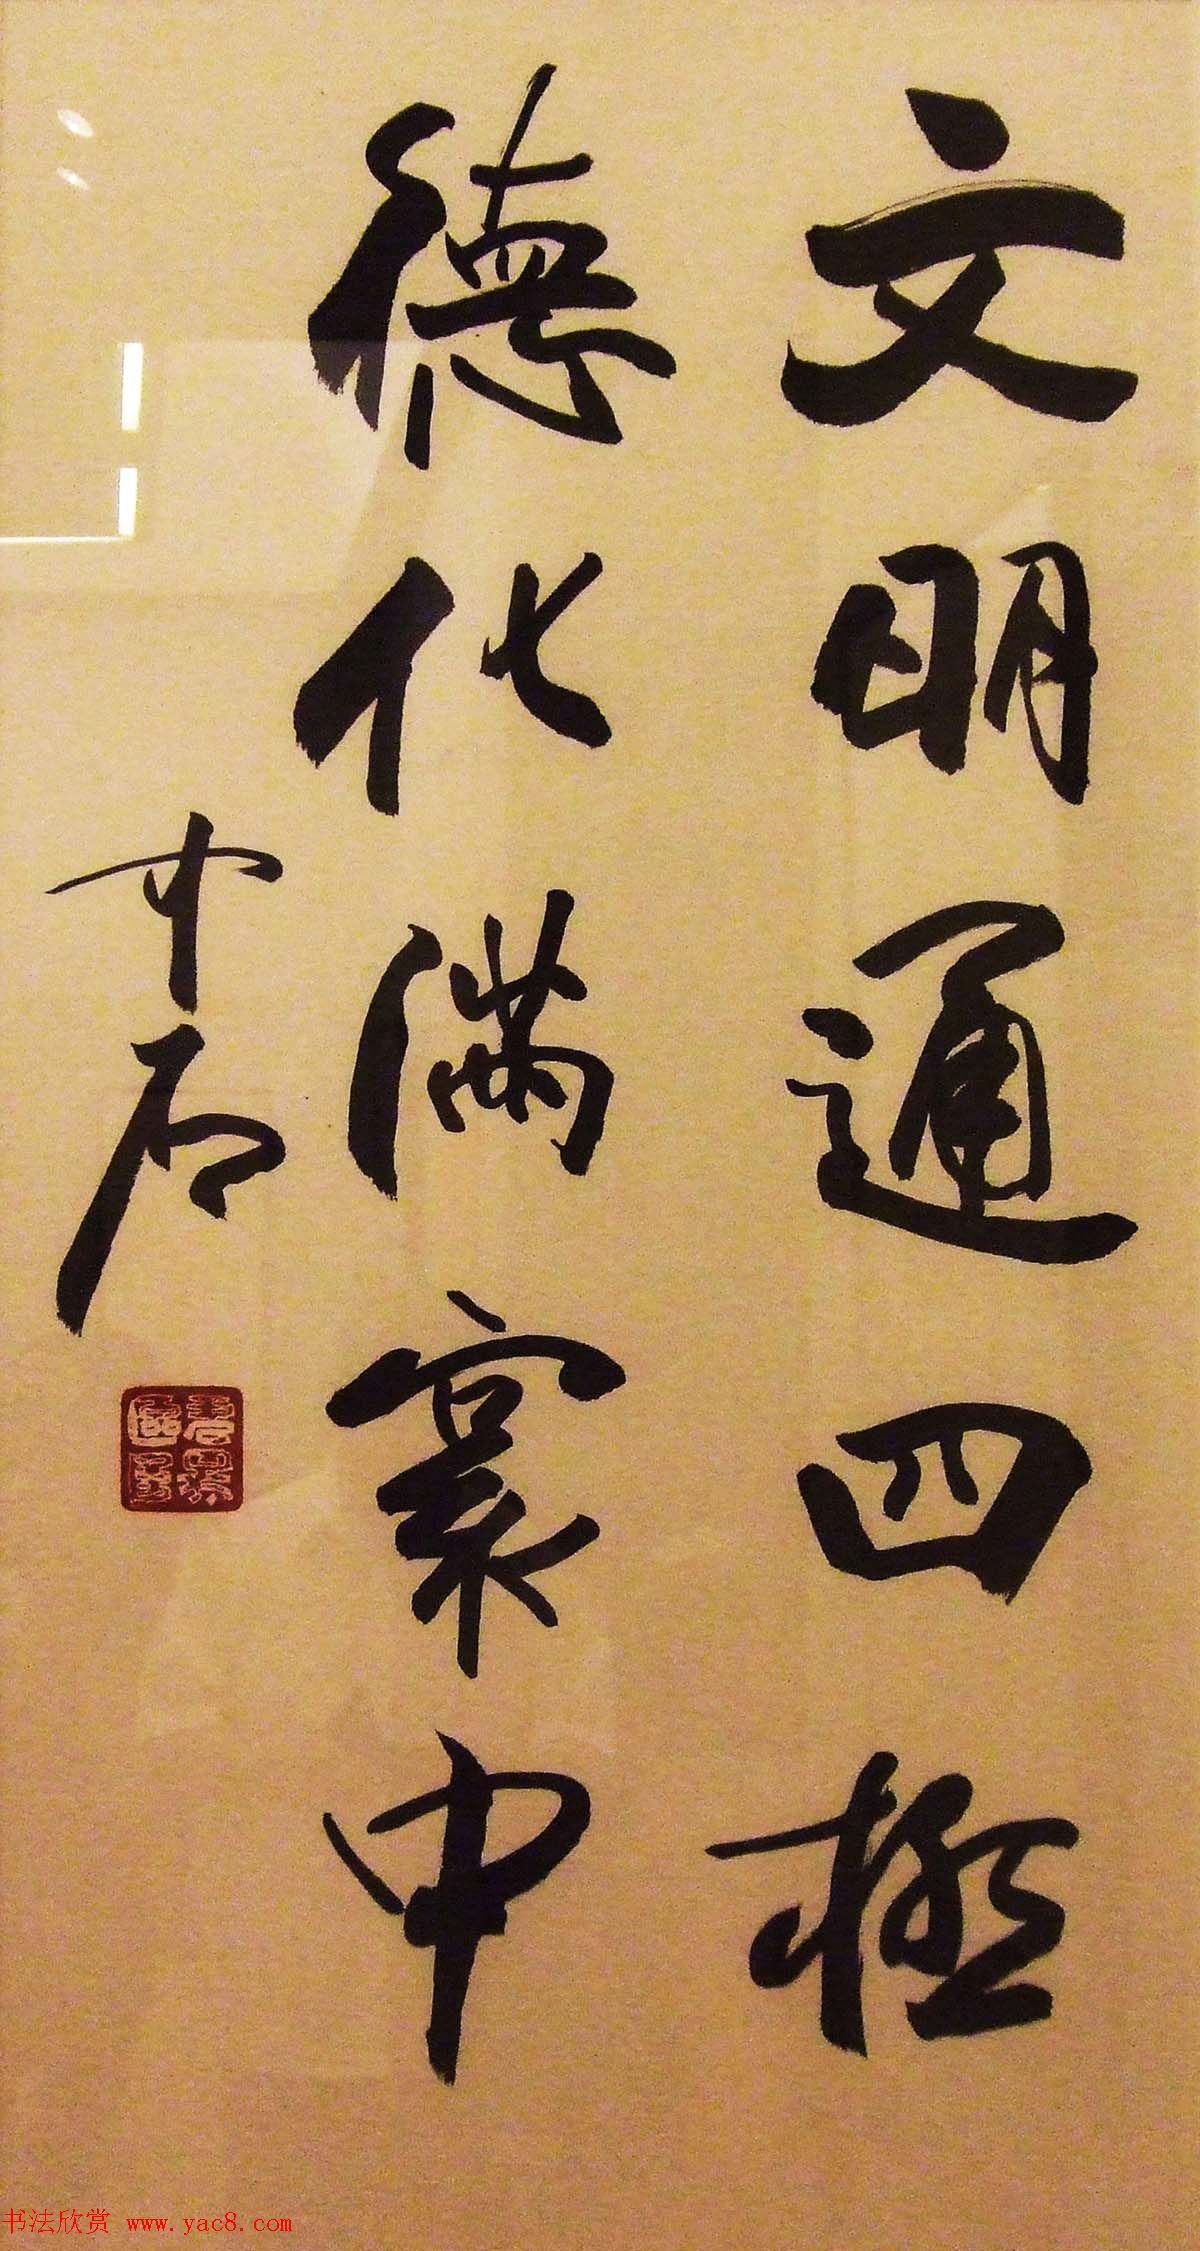 文明通四極
德化滿寰中
中石
书法欣赏 www.yac8.com